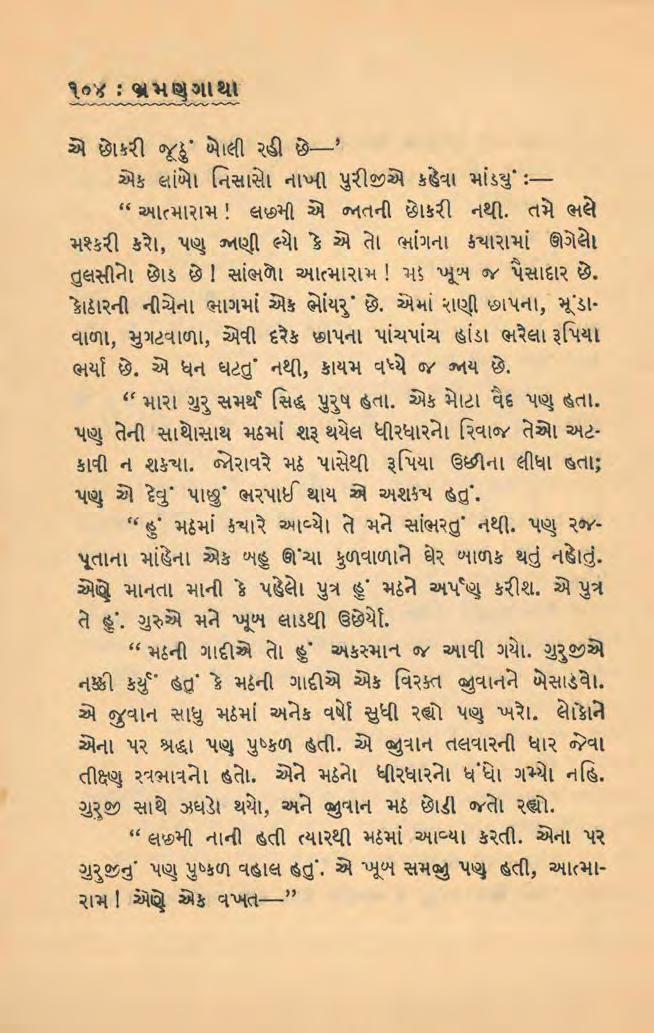 ૧૦૪ : ભ્રમણગાથા
એ છોકરી જૂઠું બોલી રહી છે—’
એક લાંબો નિસાસો નાખી પુરીજીએ કહેવા માંડયું :—
“ આત્મારામ ! લછમી એ જાતની છોકરી નથી. તમે ભલે
મશ્કરી કરો, પણ જાણી લ્યો કે એ તો ભાંગના કયારામાં ઊગેલો
તુલસીનો છોડ છે ! સાંભળો આત્મારામ ! મઠ ખૂબ જ પૈસાદાર છે.
કોઠારની નીચેના ભાગમાં એક ભોંયરું છે. એમાં રાણી છાપના, મૂંડા-
વાળા, મુગટવાળા, એવી દરેક છાપના પાંચપાંચ હાંડા ભરેલા રૂપિયા
ભર્યા છે. એ ધન ઘટતું નથી, કાયમ વધ્યે જ જાય છે.
“ મારા ગુરુ સમર્થ સિદ્ધ પુરુષ હતા. એક મોટા વૈદ પણ હતા.
પણ તેની સાથોસાથ મઠમાં શરૂ થયેલ ધીરધારનો રિવાજ તેઓ અટ-
કાવી ન શકયા. જોરાવરે મઠ પાસેથી રૂપિયા ઉછીના લીધા હતા;
પણ એ દેવું પાછું ભરપાઈ થાય એ અશકય હતું.
“ હું મઠમાં કયારે આવ્યો તે મને સાંભરતું નથી. પણ રજ-
પૂતાના માંહેના એક બહુ ઊંચા કુળવાળાને ઘેર બાળક થતું નહોતું.
એણે માનતા માની કે પહેલો પુત્ર હું મઠને અર્પણ કરીશ. એ પુત્ર
તે હું. ગુરુએ મને ખૂબ લાડથી ઉછેર્યો.
“ મઠની ગાદીએ તો હું અકસ્માત જ આવી ગયો. ગુરુજીએ
નક્કી કર્યું હતું કે મઠની ગાદીએ એક વિરક્ત જુવાનને બેસાડવો.
એ જુવાન સાધુ મઠમાં અનેક વર્ષો સુધી રહ્યો પણ ખરો. લોકોને
એના પર શ્રદ્ધા પણ પુષ્કળ હતી. એ જુવાન તલવારની ધાર જેવા
તીક્ષ્ણ સ્વભાવનો હતો. એને મઠનો ધીરધારનો ધંધો ગમ્યો નહિ.
ગુરુજી સાથે ઝઘડો થયો, અને જુવાન મઠ છોડી જતો રહ્યો.
“ લછમી નાની હતી ત્યારથી મઠમાં આવ્યા કરતી. એના પર
ગુરુજીનું પણ પુષ્કળ વહાલ હતું. એ ખૂબ સમજુ પણ હતી, આત્મા-
રામ ! એણે એક વખત—”